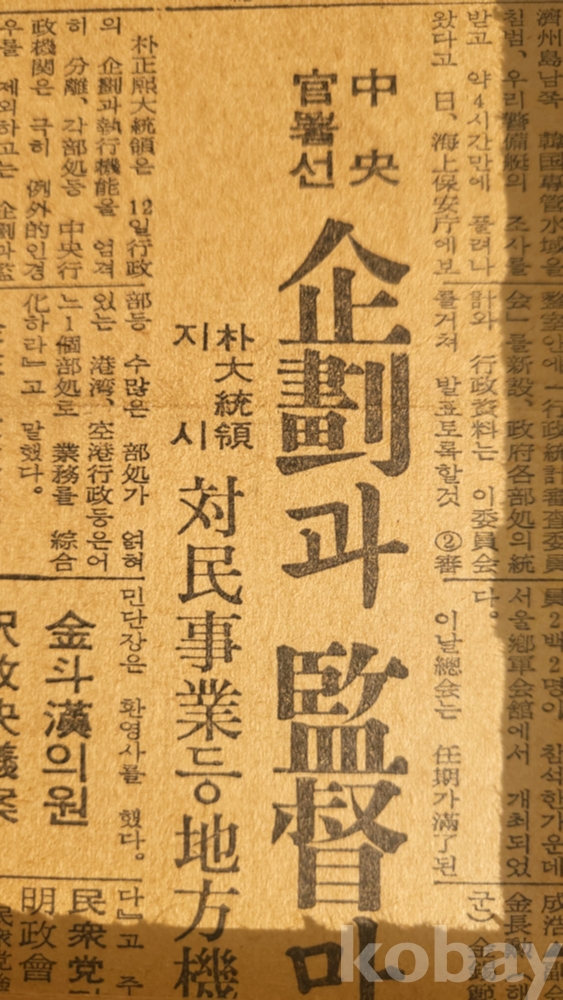 濟州島남쪽 韓国專管水域을
침범, 우리警備艇의 조사를
받고 약4시간만에 풀려나
왔다고 日、海上保安庁에보
中央
官署선
企劃과 監督만
朴大統領
지시
対民事業등 地方機
朴正熙大統領은 12일行政
의 企劃과執行機能을 엄격
히 分離、各部処등 中央行
政機関은 극히 例外的인경
우를 제외하고는 企劃과監
整室안에「行政統計審査委員
会」를新設、政府各部処의統
計와 行政資料는 이委員会
를거쳐 발표토록할것 ②審
部등 수많은 部処가 얽혀
있는 港湾、空港行政등은어
느1個部処로 業務를 綜合
化하라」고 말했다。
員2백2명이 참석한가운데
서울鄕軍会館에서 개최되었
다。
이날總会는 任期가滿了된
민단장은 환영사를 했다。
金斗漢의원
釈放決議案
다』고 주
民衆党
明政會